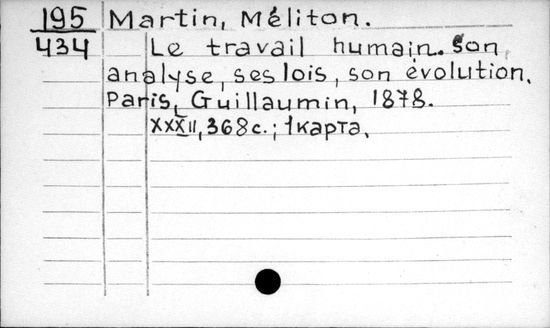 195 Martin, Méliton.
434 Le travail humain. Son
analyse, ses lois, son évolution.
Paris, Guillaumin, 1878.
XXXII, 368 с.; 1 карта.